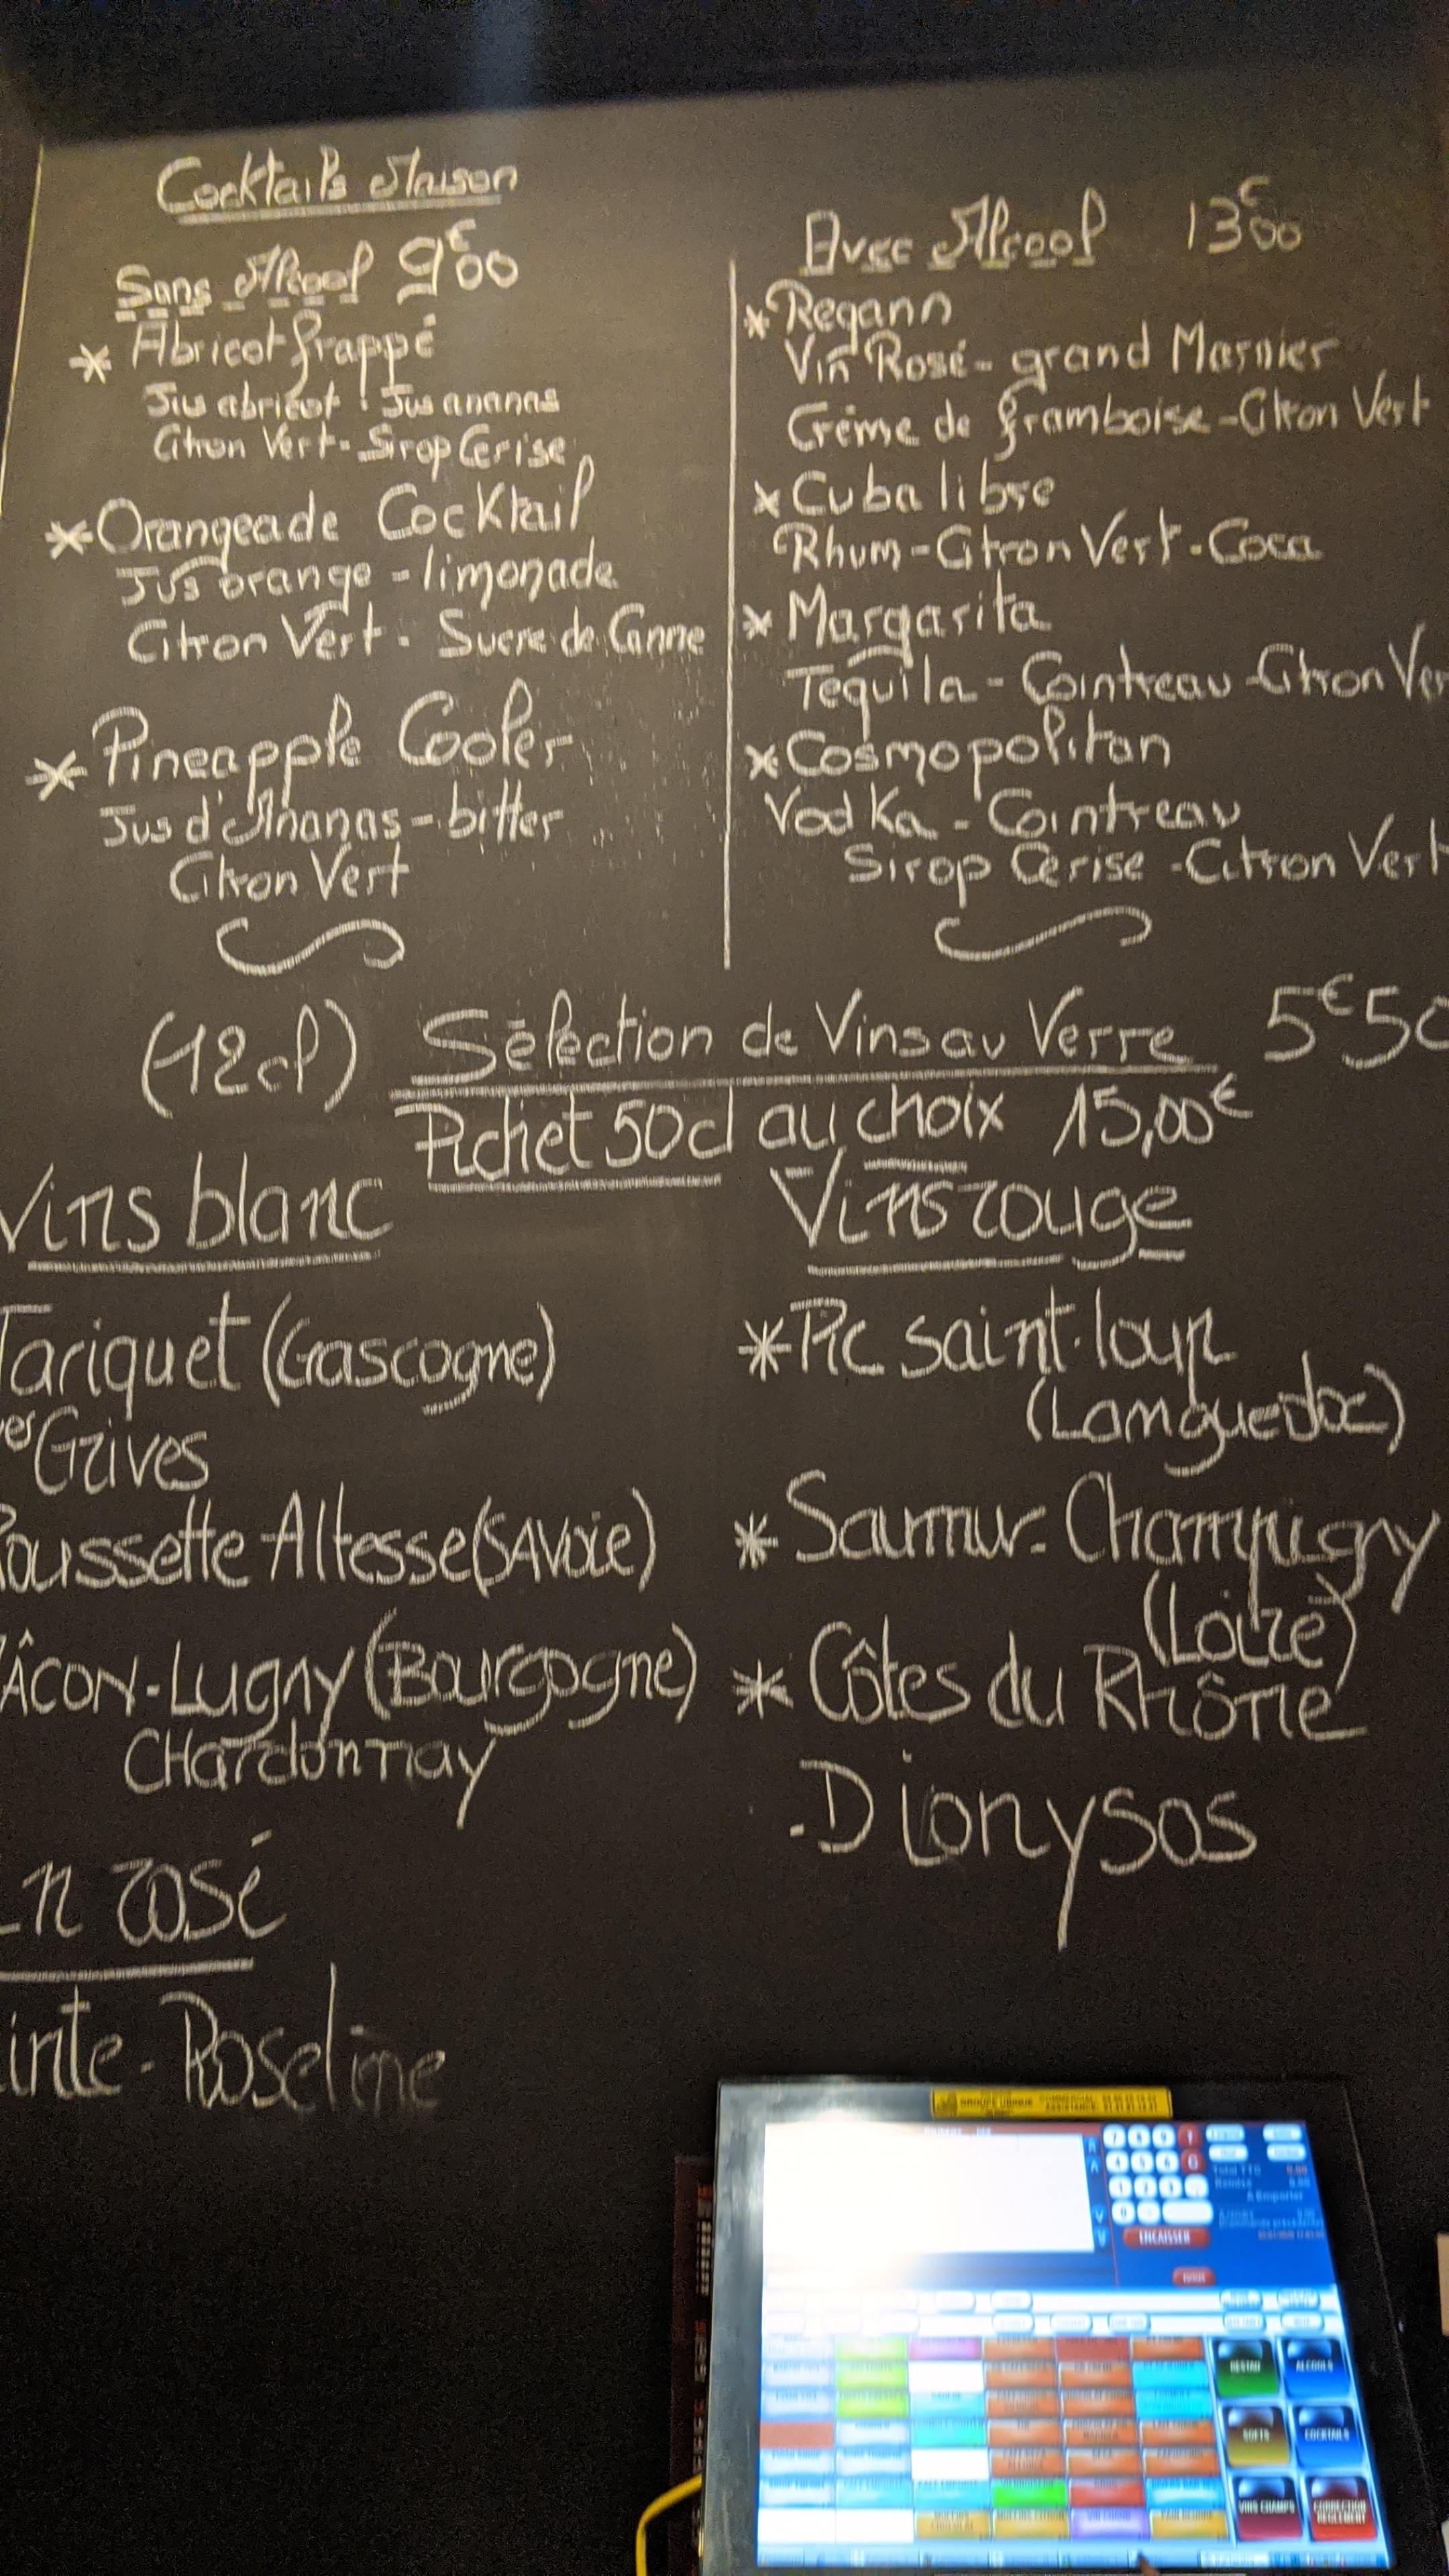 Cocktails Maison
Sans Alcool 9€00
* Abricot frappé
Jus abricot - Jus ananas
Citron Vert - Sirop Cerise
* Orangeade Cocktail
Jus orange - limonade
Citron Vert - Sucre de Canne
* Pineapple Cooler
Jus d'Ananas - bitter
Citron Vert
Avec Alcool 13€00
* Regann
Vin Rosé - grand Marnier
Crème de framboise - Citron Vert
* Cuba libre
Rhum - Citron Vert - Coca
* Margarita
Tequila - Cointreau - Citron Ver
* Cosmopolitan
Vodka - Cointreau
Sirop Cerise - Citron Vert
(12cl) Sélection de Vins au Verre 5€50
Pichet 50cl au choix 15,00€
Vins blanc
Tariquet (Gascogne)
res Grives
Roussette Altesse (SAVOIE)
MÂCON-LUGNY (BOURGOGNE)
CHARDONNAY
En rosé
inte-Roseline
Vins rouge
* Pic saint-loup
(Languedoc)
* Saumur-Champigny
(Loire)
* Côtes du Rhône
. Dionysos
ENCAISSER
RESTAU
ALCOOLS
SOFTS
COCKTAILS
VINS CHAMPS
CORRECTION
REGLEMENT